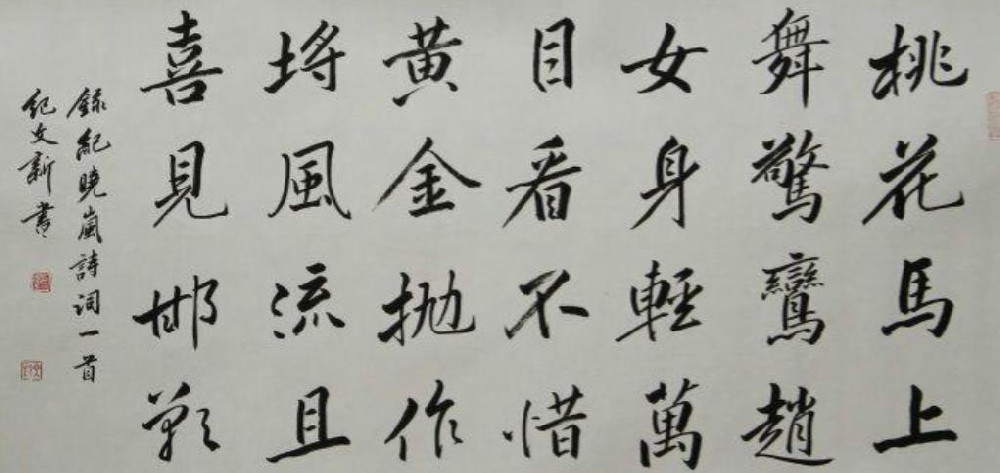 桃花馬上
舞驚鸞趙
女身輕萬
目看不惜
黃金拋作
埒風流且
喜見邯鄲
錄紀曉嵐詩詞一首
紀文新書